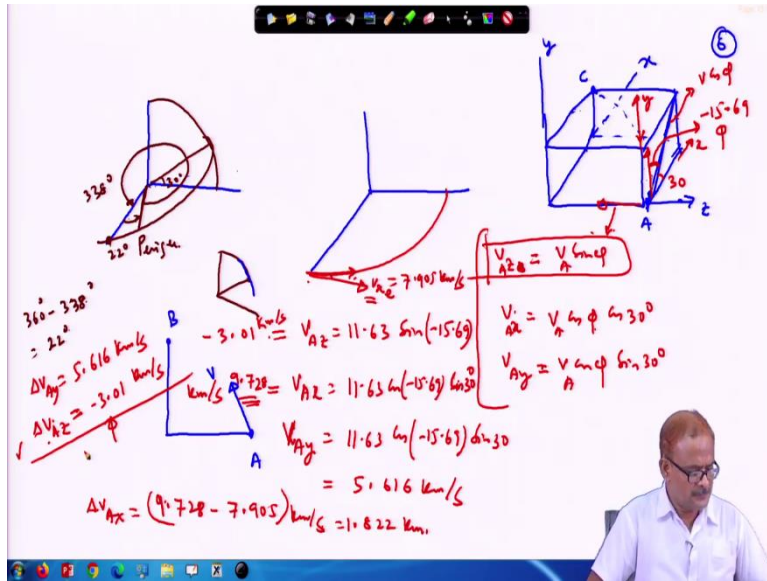 6
y
x
C
y
V cos φ
-15.69
φ
x
30
A
z
338°
30°
22° Perigee
360° - 338°
= 22°
V_xe = 7.905 km/s
V_Az = V_A Sin φ
V_Ax = V_A cos φ cos 30°
V_Ay = V_A cos φ Sin 30°
ΔV_Ay = 5.616 km/s
ΔV_Az = -3.01 km/s
φ
B
V
A
-3.01 km/s = V_Az = 11.63 Sin(-15.69)
km/s 9.728 = V_Ax = 11.63 cos(-15.69) cos 30°
V_Ay = 11.63 cos(-15.69) Sin 30
= 5.616 km/s
ΔV_Ax = (9.728 - 7.905) km/s = 1.822 km.